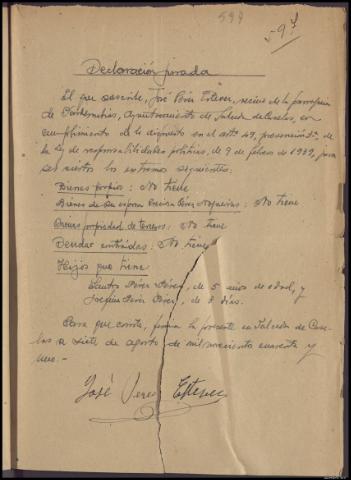 594
59 f
Declaración jurada
El que suscribe, José Pérez Estevez, vecino de la parroquia
de Ayuntamiento de Salceda de Caselas, en
cumplimiento de lo dispuesto en el artº 49, prevención 3ª, de
la Ley de responsabilidades políticas, de 9 de febrero de 1939, jura
ser ciertos los extremos siguientes:
Bienes propios: No tiene
Bienes de su esposa Pérez Nogueiras: No tiene
Bienes propiedad de terceros: No tiene
Deudas contraídas: No tiene
Hijos que tiene
Santos Pérez Pérez, de 5 años de edad, y
Pérez Pérez, de 8 días.
Para que conste, firma la presente en Salceda de Case-
las a siete de agosto de mil novecientos cuarenta y
uno.-
José Perez Estevez